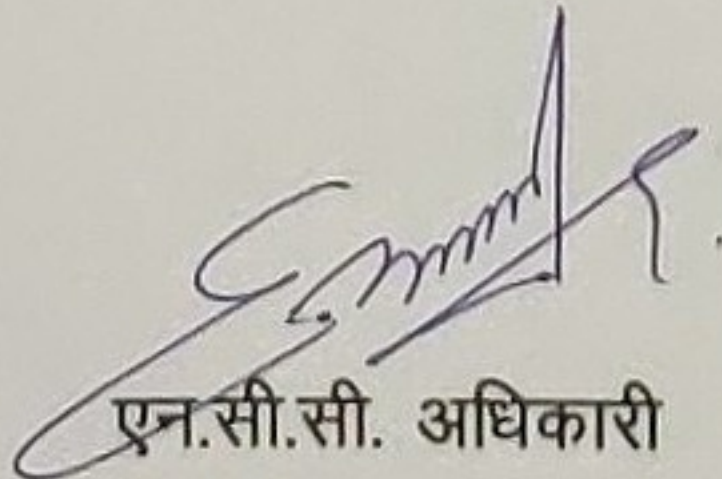 एन.सी.सी. अधिकारी